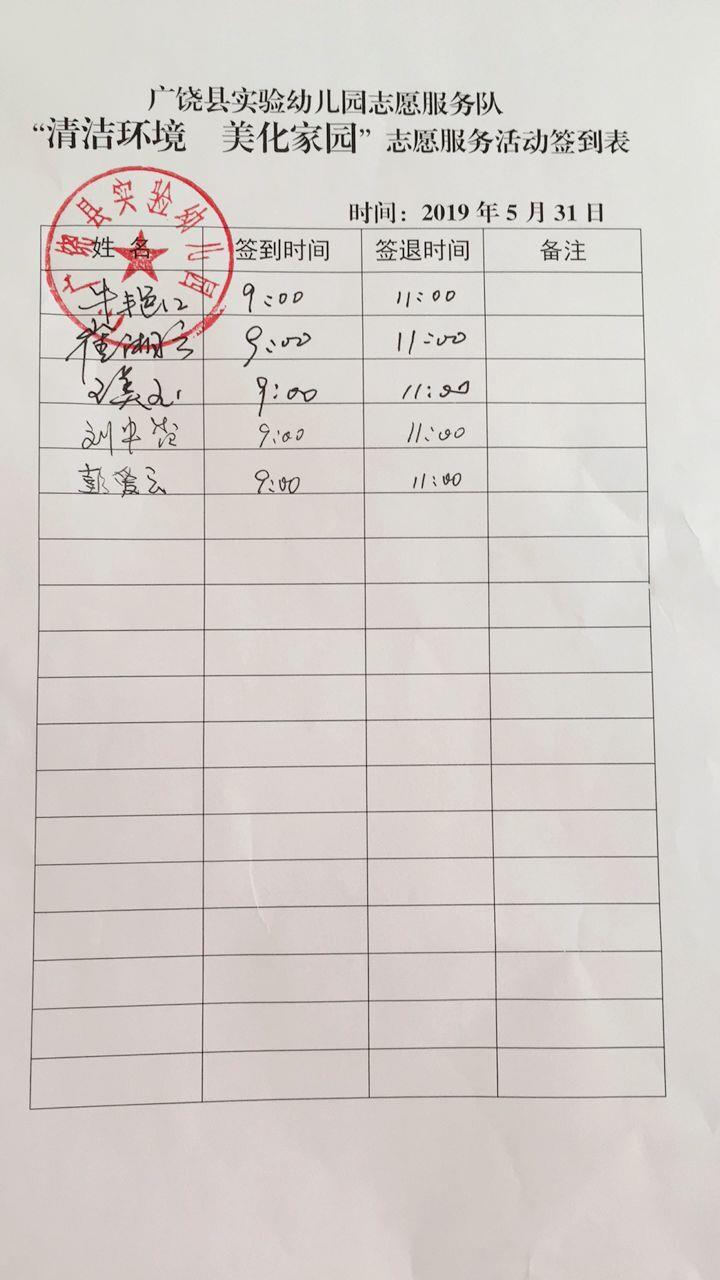 广饶县实验幼儿园志愿服务队
“清洁环境 美化家园”志愿服务活动签到表
广饶县实验幼儿园
时间：2019年5月31日
姓名 签到时间 签退时间 备注
9:00 11:00
崔湘云 9:00 11:00
9:00 11:00
刘 9:00 11:00
彭爱云 9:00 11:00